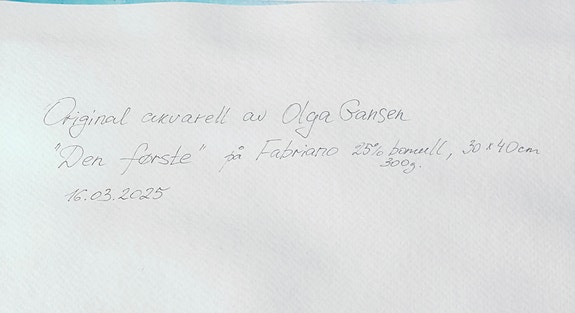 Original akvarell av Olga Gansen
"Den første" på Fabriano 25% bomull, 30x40cm
300g.
16.03.2025